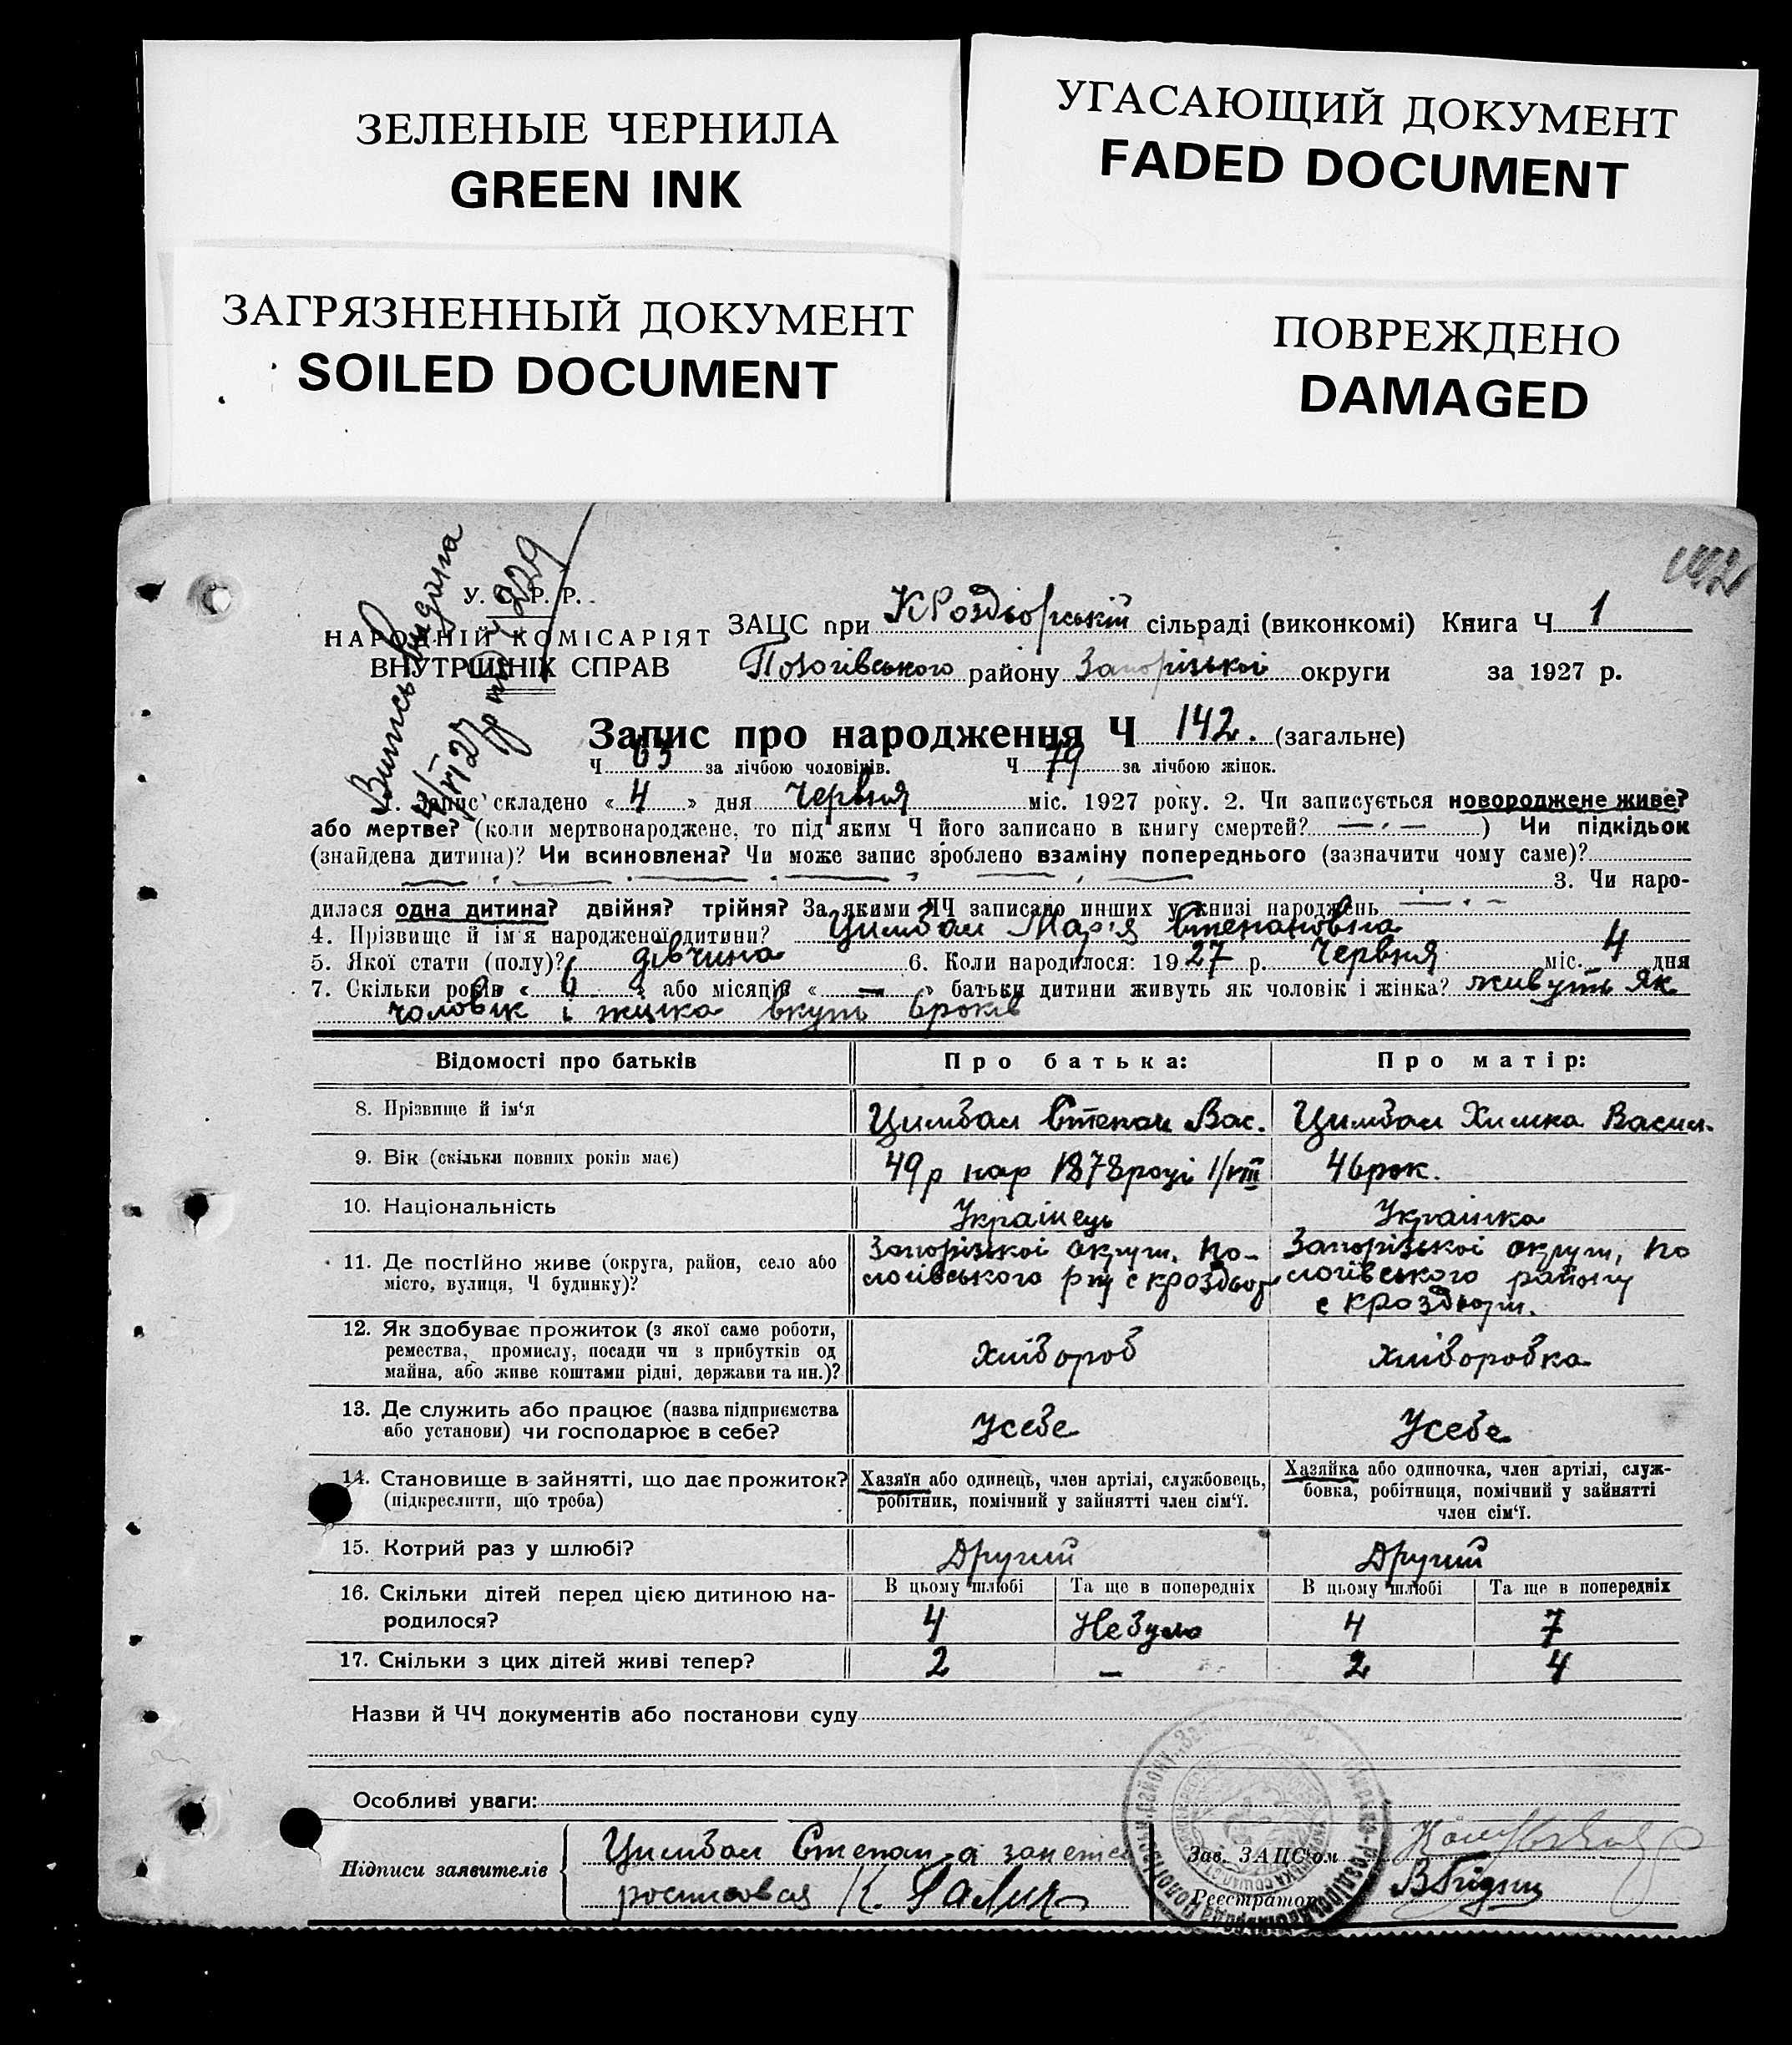 ЗЕЛЕНЫЕ ЧЕРНИЛА
GREEN INK
УГАСАЮЩИЙ ДОКУМЕНТ
FADED DOCUMENT
ЗАГРЯЗНЕННЫЙ ДОКУМЕНТ
SOILED DOCUMENT
ПОВРЕЖДЕНО
DAMAGED
142
Випись видана
У. С. Р. Р.
НАРОДНІЙ КОМІСАРІЯТ
ВНУТРІШНІХ СПРАВ
ЗАЦС при КРоздорській сільраді (виконкомі) Книга Ч 1
Пологівського району Запорізькоі округи за 1927 р.
Запис про народження Ч 142. (загальне)
Ч 63 за лічбою чоловіків. Ч 79 за лічбою жінок.
1. Запис складено « 4 » дня Червня міс. 1927 року. 2. Чи записується новороджене живе?
або мертве? (коли мертвонароджене, то під яким Ч його записано в книгу смертей? — · — ) Чи підкідьок
(знайдена дитина)? Чи всиновлена? Чи може запис зроблено взаміну попереднього (зазначити чому саме)?
3. Чи наро-
дилася одна дитина? двійня? трійня? За якими ЧЧ записано инших у книзі народжень — · –
4. Прізвище й ім'я народженої дитини? Цимбал Мар'я Степановна
5. Якої стати (полу)? дівчина 6. Коли народилося: 1927 р. Червня міс. 4 дня
7. Скільки років « 6 » або місяців « — » батьки дитини живуть як чоловік і жінка? живуть як
чоловік і жинка вкупі 6років
Відомості про батьків Про батька: Про матір:
8. Прізвище й ім‘я Цимбал Степан Вас. Цимбал Химка Васил.
9. Вік (скільки повних років має) 49р нар 1878році 1/VIII 46рок.
10. Національність Украінець Украінка
11. Де постійно живе (округа, район, село або місто, вулиця, Ч будинку)?
Запорізькоі округи, По-
логівського р-ну с кроздор
Запорізькоі округи, По
логівського району
с кроздори.
12. Як здобуває прожиток (з якої саме роботи,
ремества, промислу, посади чи з прибутків од
майна, або живе коштами рідні, держави та ин.)?
Хлібороб Хліборобка
13. Де служить або працює (назва підприємства
або установи) чи господарює в себе?
Усебе Усебе
14. Становище в зайнятті, що дає прожиток?
(підкреслити, що треба)
Хазяїн або одинець, член артілі, службовець,
робітник, помічний у зайнятті член сім‘ї.
Хазяйка або одиночка, член артілі, служ-
бовка, робітниця, помічний у зайнятті
член сім‘ї.
15. Котрий раз у шлюбі? Другий Другий
16. Скільки дітей перед цією дитиною на-
родилося?
В цьому шлюбі Та ще в попередніх В цьому шлюбі Та ще в попередніх
4 Небуло 4 7
17. Скільки з цих дітей живі тепер? 2 – 2 4
Назви й ЧЧ документів або постанови суду
Особливі уваги:
Підписи заявителів
Цимбал Степан, а занего
росписався К.
Зав. ЗАЦС'ом
Реєстратор